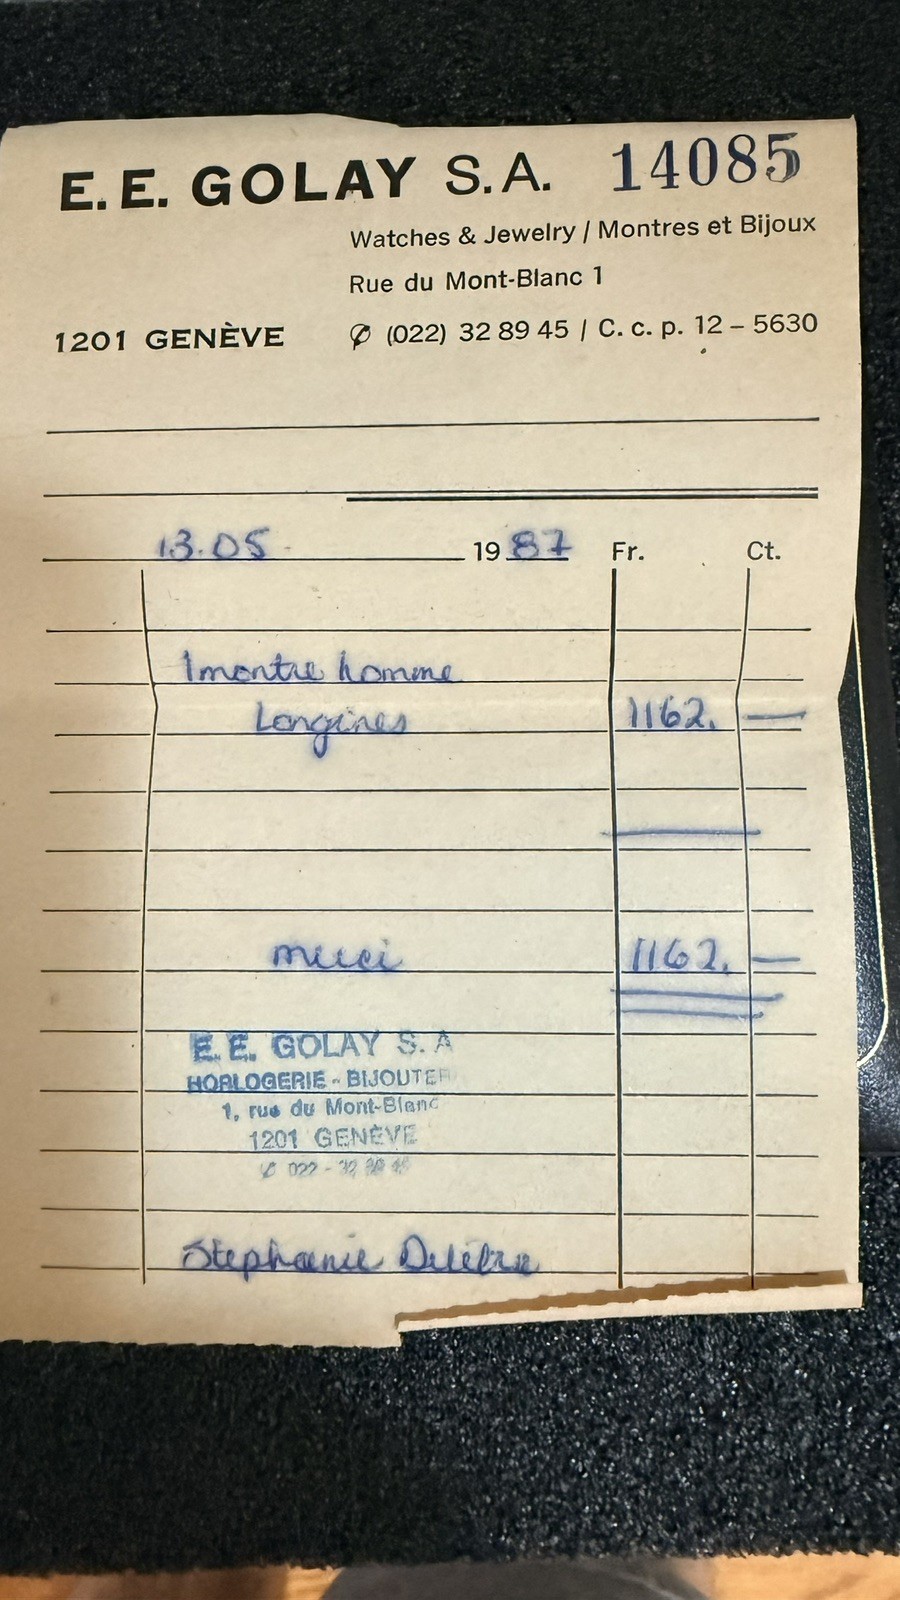 E. E. GOLAY S.A. 14085
Watches & Jewelry / Montres et Bijoux
Rue du Mont-Blanc 1
1201 GENÈVE ✆ (022) 32 89 45 / C. c. p. 12 – 5630
13.05 1987 Fr. Ct.
1 montre homme
Longines 1162. —
merci 1162. —
E. E. GOLAY S. A
HORLOGERIE - BIJOUTER
1, rue du Mont-Blanc
1201 GENÈVE
✆ 022 - 32 89 45
Stephanie